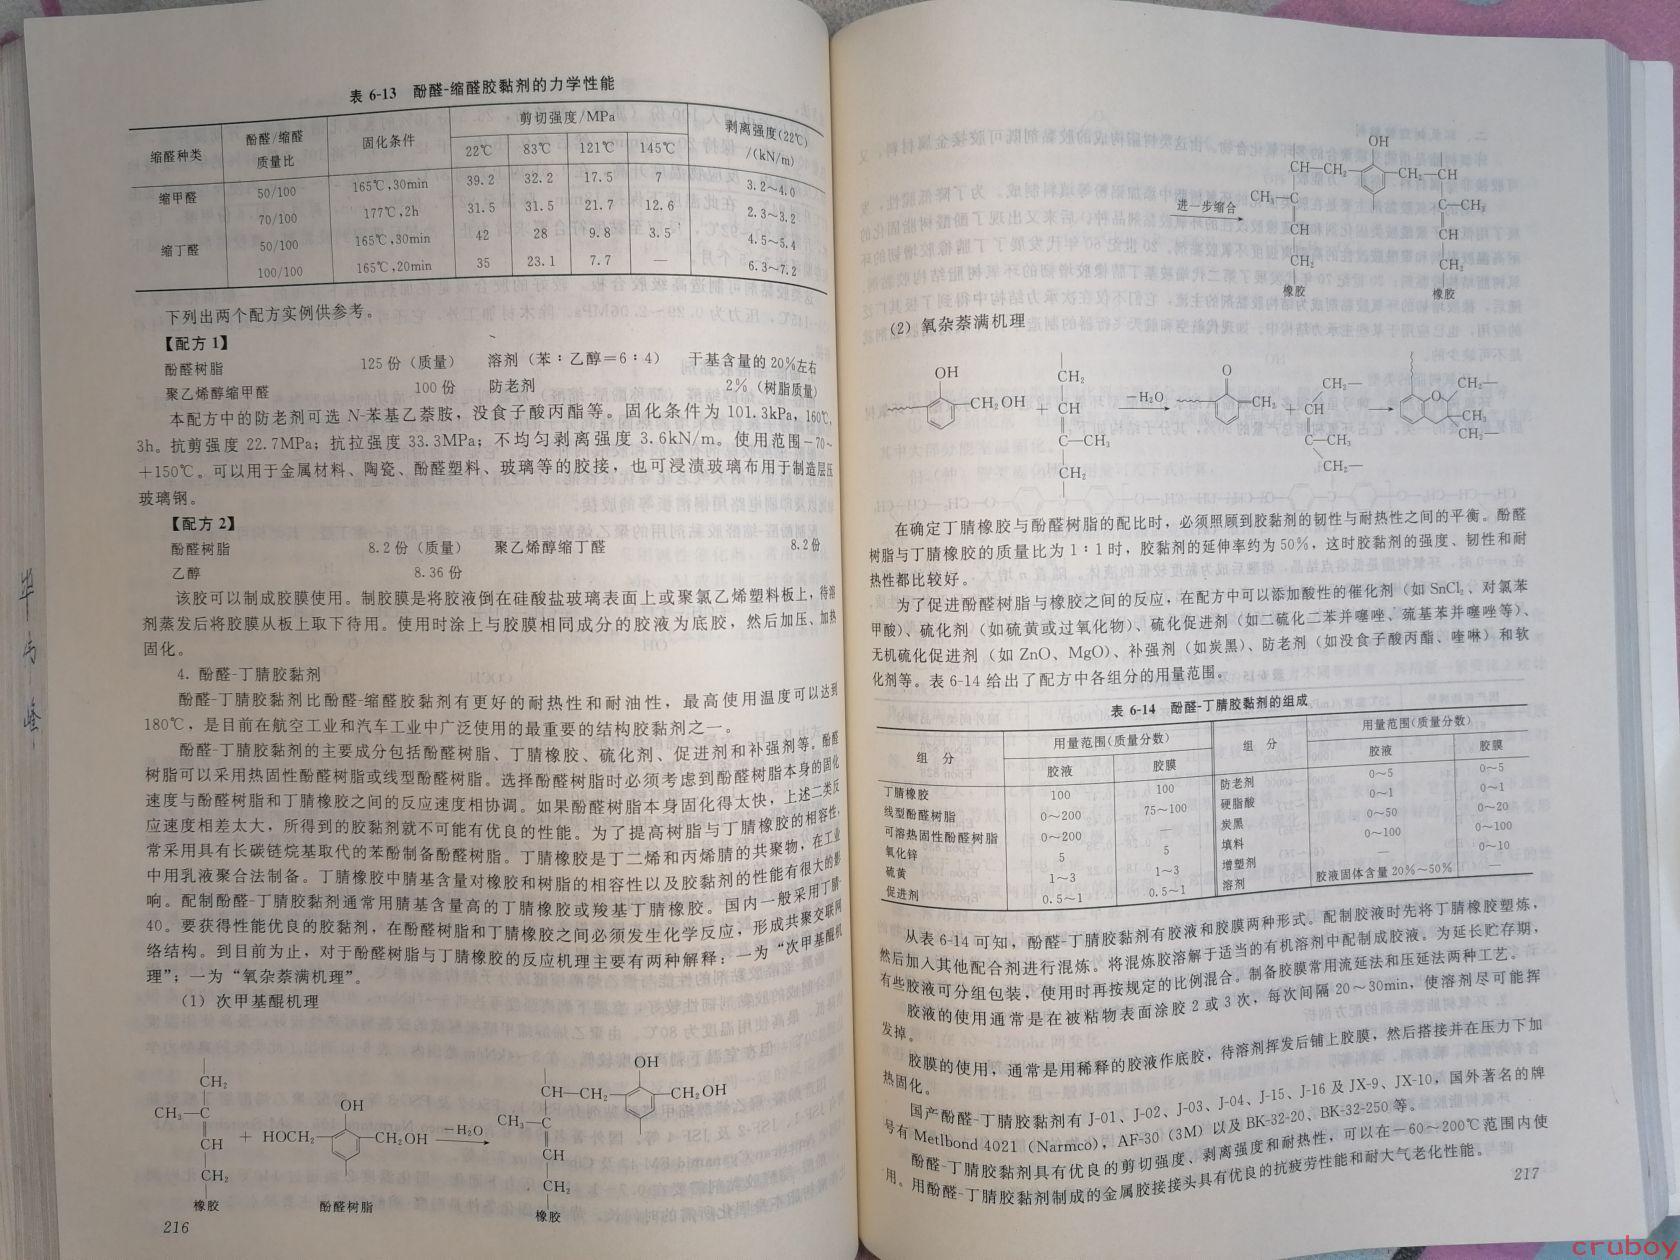 表 6-13 酚醛-缩醛胶黏剂的力学性能
缩醛种类 酚醛/缩醛质量比 固化条件 剪切强度/MPa 剥离强度(22℃)/(kN/m)
22℃ 83℃ 121℃ 145℃
缩甲醛 50/100 165℃,30min 39.2 32.2 17.5 7 3.2~4.0
70/100 177℃,2h 31.5 31.5 21.7 12.6 2.3~3.2
缩丁醛 50/100 165℃,30min 42 28 9.8 3.5 4.5~5.4
100/100 165℃,20min 35 23.1 7.7 — 6.3~7.2
下列出两个配方实例供参考。
【配方 1】
酚醛树脂 125 份（质量） 溶剂（苯∶乙醇＝6∶4） 干基含量的 20%左右
聚乙烯醇缩甲醛 100 份 防老剂 2%（树脂质量）
本配方中的防老剂可选 N-苯基乙萘胺，没食子酸丙酯等。固化条件为 101.3kPa，160℃，
3h。抗剪强度 22.7MPa；抗拉强度 33.3MPa；不均匀剥离强度 3.6kN/m。使用范围－70~
＋150℃。可以用于金属材料、陶瓷、酚醛塑料、玻璃等的胶接，也可浸渍玻璃布用于制造层压
玻璃钢。
【配方 2】
酚醛树脂 8.2 份（质量） 聚乙烯醇缩丁醛 8.2 份
乙醇 8.36 份
该胶可以制成胶膜使用。制胶膜是将胶液倒在硅酸盐玻璃表面上或聚氯乙烯塑料板上，待溶
剂蒸发后将胶膜从板上取下待用。使用时涂上与胶膜相同成分的胶液为底胶，然后加压、加热
固化。
4. 酚醛-丁腈胶黏剂
酚醛-丁腈胶黏剂比酚醛-缩醛胶黏剂有更好的耐热性和耐油性，最高使用温度可以达到
180℃，是目前在航空工业和汽车工业中广泛使用的最重要的结构胶黏剂之一。
酚醛-丁腈胶黏剂的主要成分包括酚醛树脂、丁腈橡胶、硫化剂、促进剂和补强剂等。酚醛
树脂可以采用热固性酚醛树脂或线型酚醛树脂。选择酚醛树脂时必须考虑到酚醛树脂本身的固化
速度与酚醛树脂和丁腈橡胶之间的反应速度相协调。如果酚醛树脂本身固化得太快，上述二类反
应速度相差太大，所得到的胶黏剂就不可能有优良的性能。为了提高树脂与丁腈橡胶的相容性，
常采用具有长碳链烷基取代的苯酚制备酚醛树脂。丁腈橡胶是丁二烯和丙烯腈的共聚物，在工业
中用乳液聚合法制备。丁腈橡胶中腈基含量对橡胶和树脂的相容性以及胶黏剂的性能有很大的影
响。配制酚醛-丁腈胶黏剂通常用腈基含量高的丁腈橡胶或羧基丁腈橡胶。国内一般采用丁腈-
40。要获得性能优良的胶黏剂，在酚醛树脂和丁腈橡胶之间必须发生化学反应，形成共聚交联网
络结构。到目前为止，对于酚醛树脂与丁腈橡胶的反应机理主要有两种解释：一为“次甲基醌机
理”；一为“氧杂萘满机理”。
（1）次甲基醌机理
CH₂
CH₃—C
CH
CH₂
橡胶
+
OH
HOCH₂ CH₂OH
酚醛树脂
−H₂O
OH
CH—CH₂ CH₂OH
CH₃—C
CH
CH₂
橡胶
216
毕于峰
进一步缩合
OH
CH—CH₂ CH₂—CH
CH₃—C C—CH₃
CH CH
CH₂ CH₂
橡胶 橡胶
（2）氧杂萘满机理
OH
CH₂OH
+
CH₂
CH
C—CH₃
CH₂
−H₂O
O
CH₂
+
CH₂—
CH
C—CH₃
CH₂—
O CH₂—
CH₃
CH₂—
在确定丁腈橡胶与酚醛树脂的配比时，必须照顾到胶黏剂的韧性与耐热性之间的平衡。酚醛
树脂与丁腈橡胶的质量比为 1∶1 时，胶黏剂的延伸率约为 50%，这时胶黏剂的强度、韧性和耐
热性都比较好。
为了促进酚醛树脂与橡胶之间的反应，在配方中可以添加酸性的催化剂（如 SnCl₂、对氯苯
甲酸）、硫化剂（如硫黄或过氧化物）、硫化促进剂（如二硫化二苯并噻唑、巯基苯并噻唑等）、
无机硫化促进剂（如 ZnO、MgO）、补强剂（如炭黑）、防老剂（如没食子酸丙酯、喹啉）和软
化剂等。表 6-14 给出了配方中各组分的用量范围。
表 6-14 酚醛-丁腈胶黏剂的组成
组 分 用量范围(质量分数) 组 分 用量范围(质量分数)
胶液 胶膜 胶液 胶膜
丁腈橡胶 100 100 防老剂 0~5 0~5
线型酚醛树脂 0~200 75~100 硬脂酸 0~1 0~1
可溶热固性酚醛树脂 0~200 — 炭黑 0~50 0~20
氧化锌 5 5 填料 0~100 0~100
硫黄 1~3 1~3 增塑剂 — 0~10
促进剂 0.5~1 0.5~1 溶剂 胶液固体含量 20%~50% —
从表 6-14 可知，酚醛-丁腈胶黏剂有胶液和胶膜两种形式。配制胶液时先将丁腈橡胶塑炼，
然后加入其他配合剂进行混炼。将混炼胶溶解于适当的有机溶剂中配制成胶液。为延长贮存期，
有些胶液可分组包装，使用时再按规定的比例混合。制备胶膜常用流延法和压延法两种工艺。
胶液的使用通常是在被粘物表面涂胶 2 或 3 次，每次间隔 20~30min，使溶剂尽可能挥
发掉。
胶膜的使用，通常是用稀释的胶液作底胶，待溶剂挥发后铺上胶膜，然后搭接并在压力下加
热固化。
国产酚醛-丁腈胶黏剂有 J-01、J-02、J-03、J-04、J-15、J-16 及 JX-9、JX-10，国外著名的牌
号有 Metlbond 4021（Narmco），AF-30（3M）以及 BK-32-20、BK-32-250 等。
酚醛-丁腈胶黏剂具有优良的剪切强度、剥离强度和耐热性，可以在－60~200℃范围内使
用。用酚醛-丁腈胶黏剂制成的金属胶接接头具有优良的抗疲劳性能和耐大气老化性能。
217
cruboy